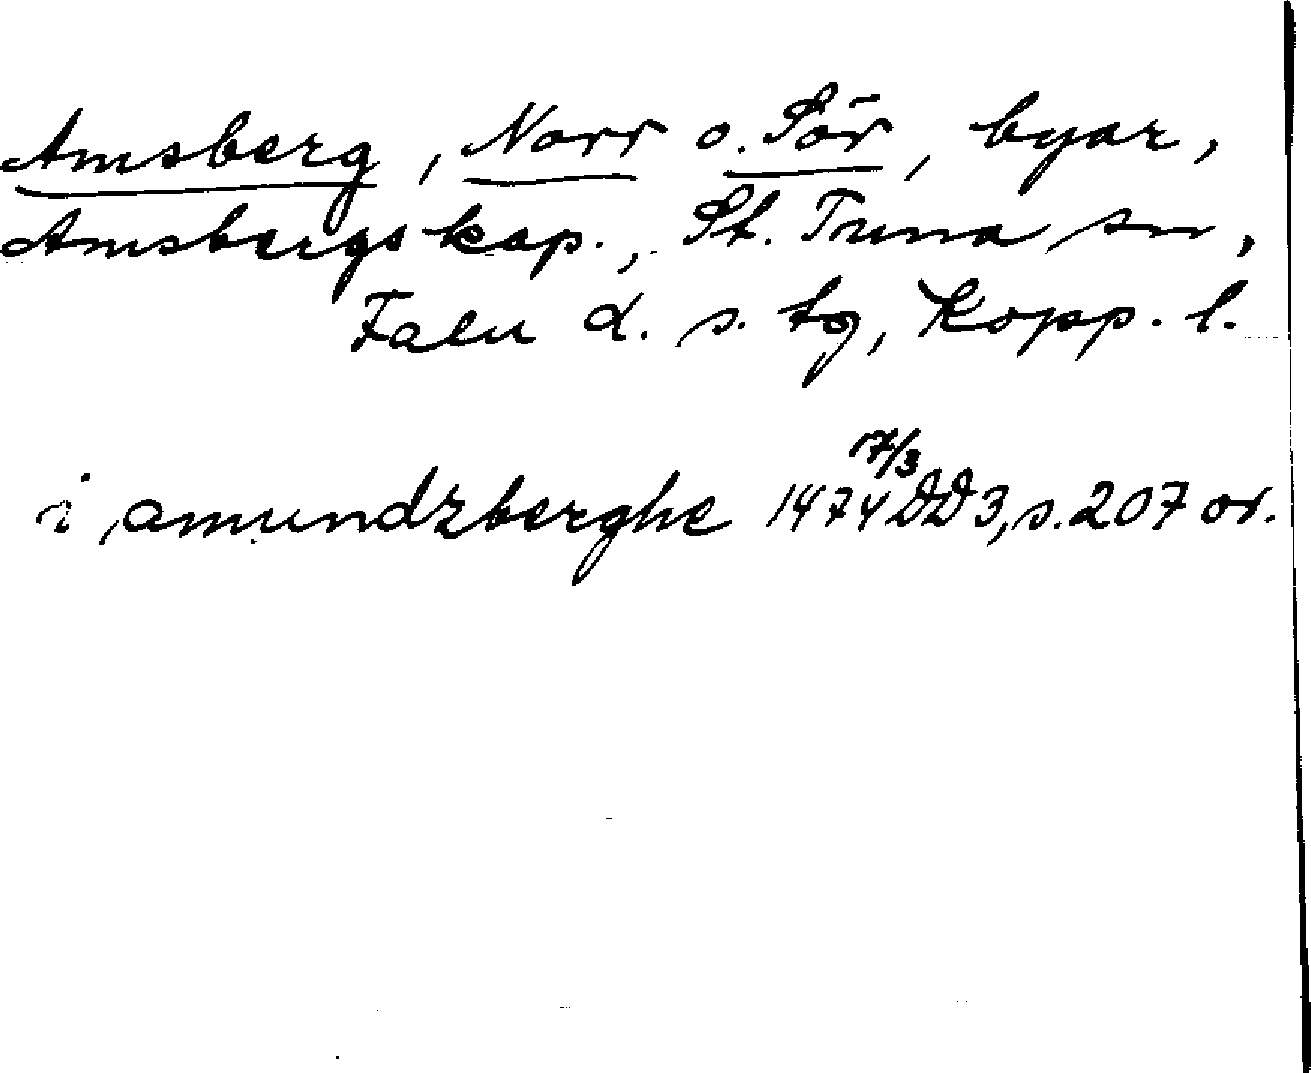 Amsberg, Norr o. Sör, byar,
Amsbergs kap., St. Tuna sn,
Falu d. s. tg, Kopp. l.
i amundzberghe 1474 17/3 DD 3, s. 207 or.